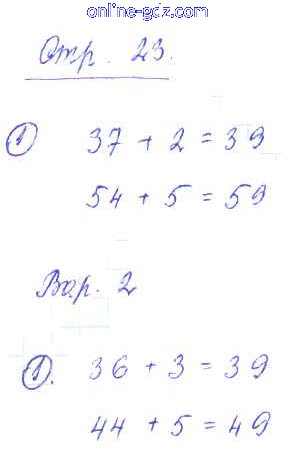 online-gdz.com
Стр. 23.
① 37 + 2 = 39
54 + 5 = 59
Вар. 2
①. 36 + 3 = 39
44 + 5 = 49